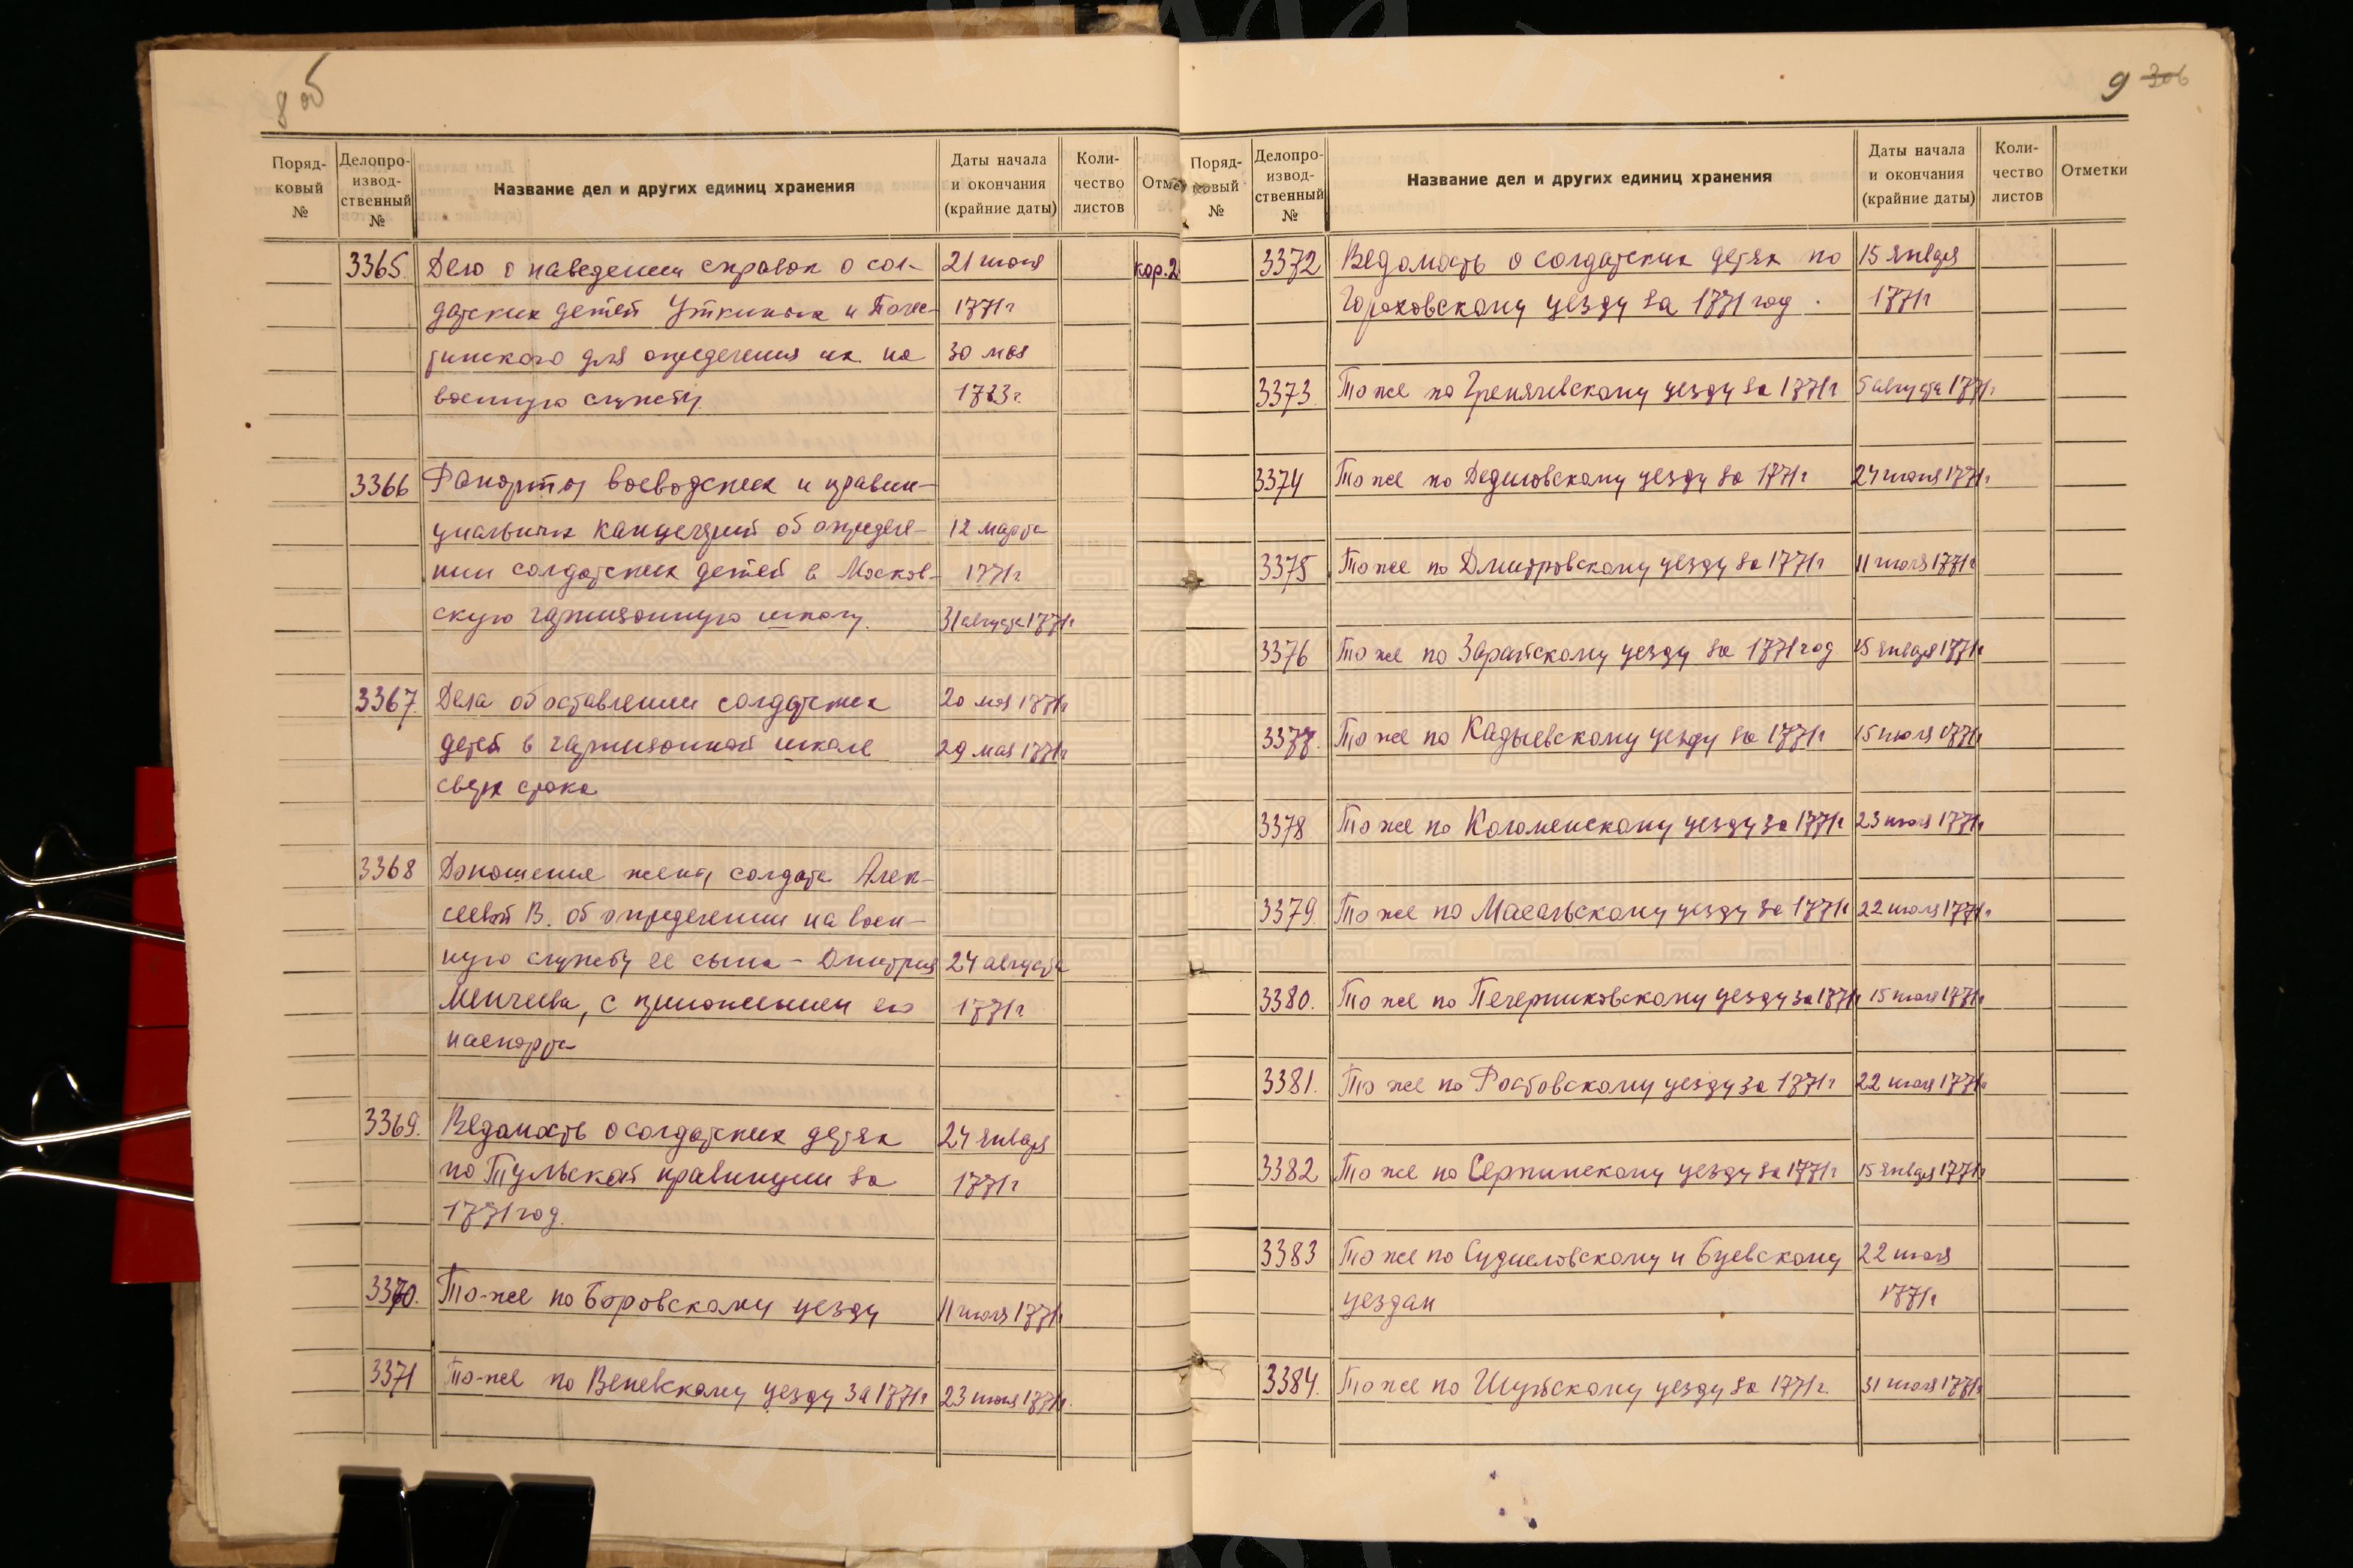 8 об
Поряд-
ковый
№
Делопро-
извод-
ственный
№
Название дел и других единиц хранения
Даты начала
и окончания
(крайние даты)
Коли-
чество
листов
Отме
3365. Дело о наведении справок о сол- 21 июня кор.2
датских детей Уткиных и
для определения их на 30 мая
военную службу
3366 Рапорты воеводских и правин-
циальных канцелярий об определе- 12 марта
нии солдатских детей в Москов- 1771г
скую гарнизонную школу. 31 августа 1771г
3367. Дела об оставлении солдатских 20 мая 1771г
детей в гарнизонной школе 29 мая 1771г
сверх срока
3368 Доношение жены солдата Алек-
сеевой В. об определении на воен-
ную службу ее сына - Дмитрия 24 августа
с приложением его 1771г
паспорта
3369. Ведомость о солдатских детях 24 января
по Тульской правинции за 1771г
1771 год.
3370. То-же по Боровскому уезду 11 июля 1771г
3371 То-же по Веневскому уезду за 1771г 23 июня 1771г.
9 306
Поряд-
ковый
№
Делопро-
извод-
ственный
№
Название дел и других единиц хранения
Даты начала
и окончания
(крайние даты)
Коли-
чество
листов
Отметки
3372 Ведомость о солдатских детях по 15 января
Гороховскому уезду за 1771 год. 1771г
3373. То же по Гремячевскому уезду за 1771г 5 августа 1771г.
3374 То же по Дедиловскому уезду за 1771г 24 июня 1771г.
3375 То же по Дмитровскому уезду за 1771г 11 июля 1771г
3376 То же по Зарайскому уезду за 1771 год 15 января 1771г
3377. То же по Кадыевскому уезду за 1771г 15 июля 1771г
3378 То же по Коломенскому уезду за 1771г 23 июля 1771г
3379. То же по Масальскому уезду за 1771г 22 июля 1771г.
3380. То же по Печерниковскому уезду за 1771г 15 июля 1771г
3381. То же по Ростовскому уезду за 1771г 22 июля 1771г
3382 То же по Серпинскому уезду за 1771г 15 января 1771г
3383 То же по Судиславскому и Буевскому 22 июля
уездам 1771г
3384. То же по Шуйскому уезду за 1771г. 31 июля 1771г